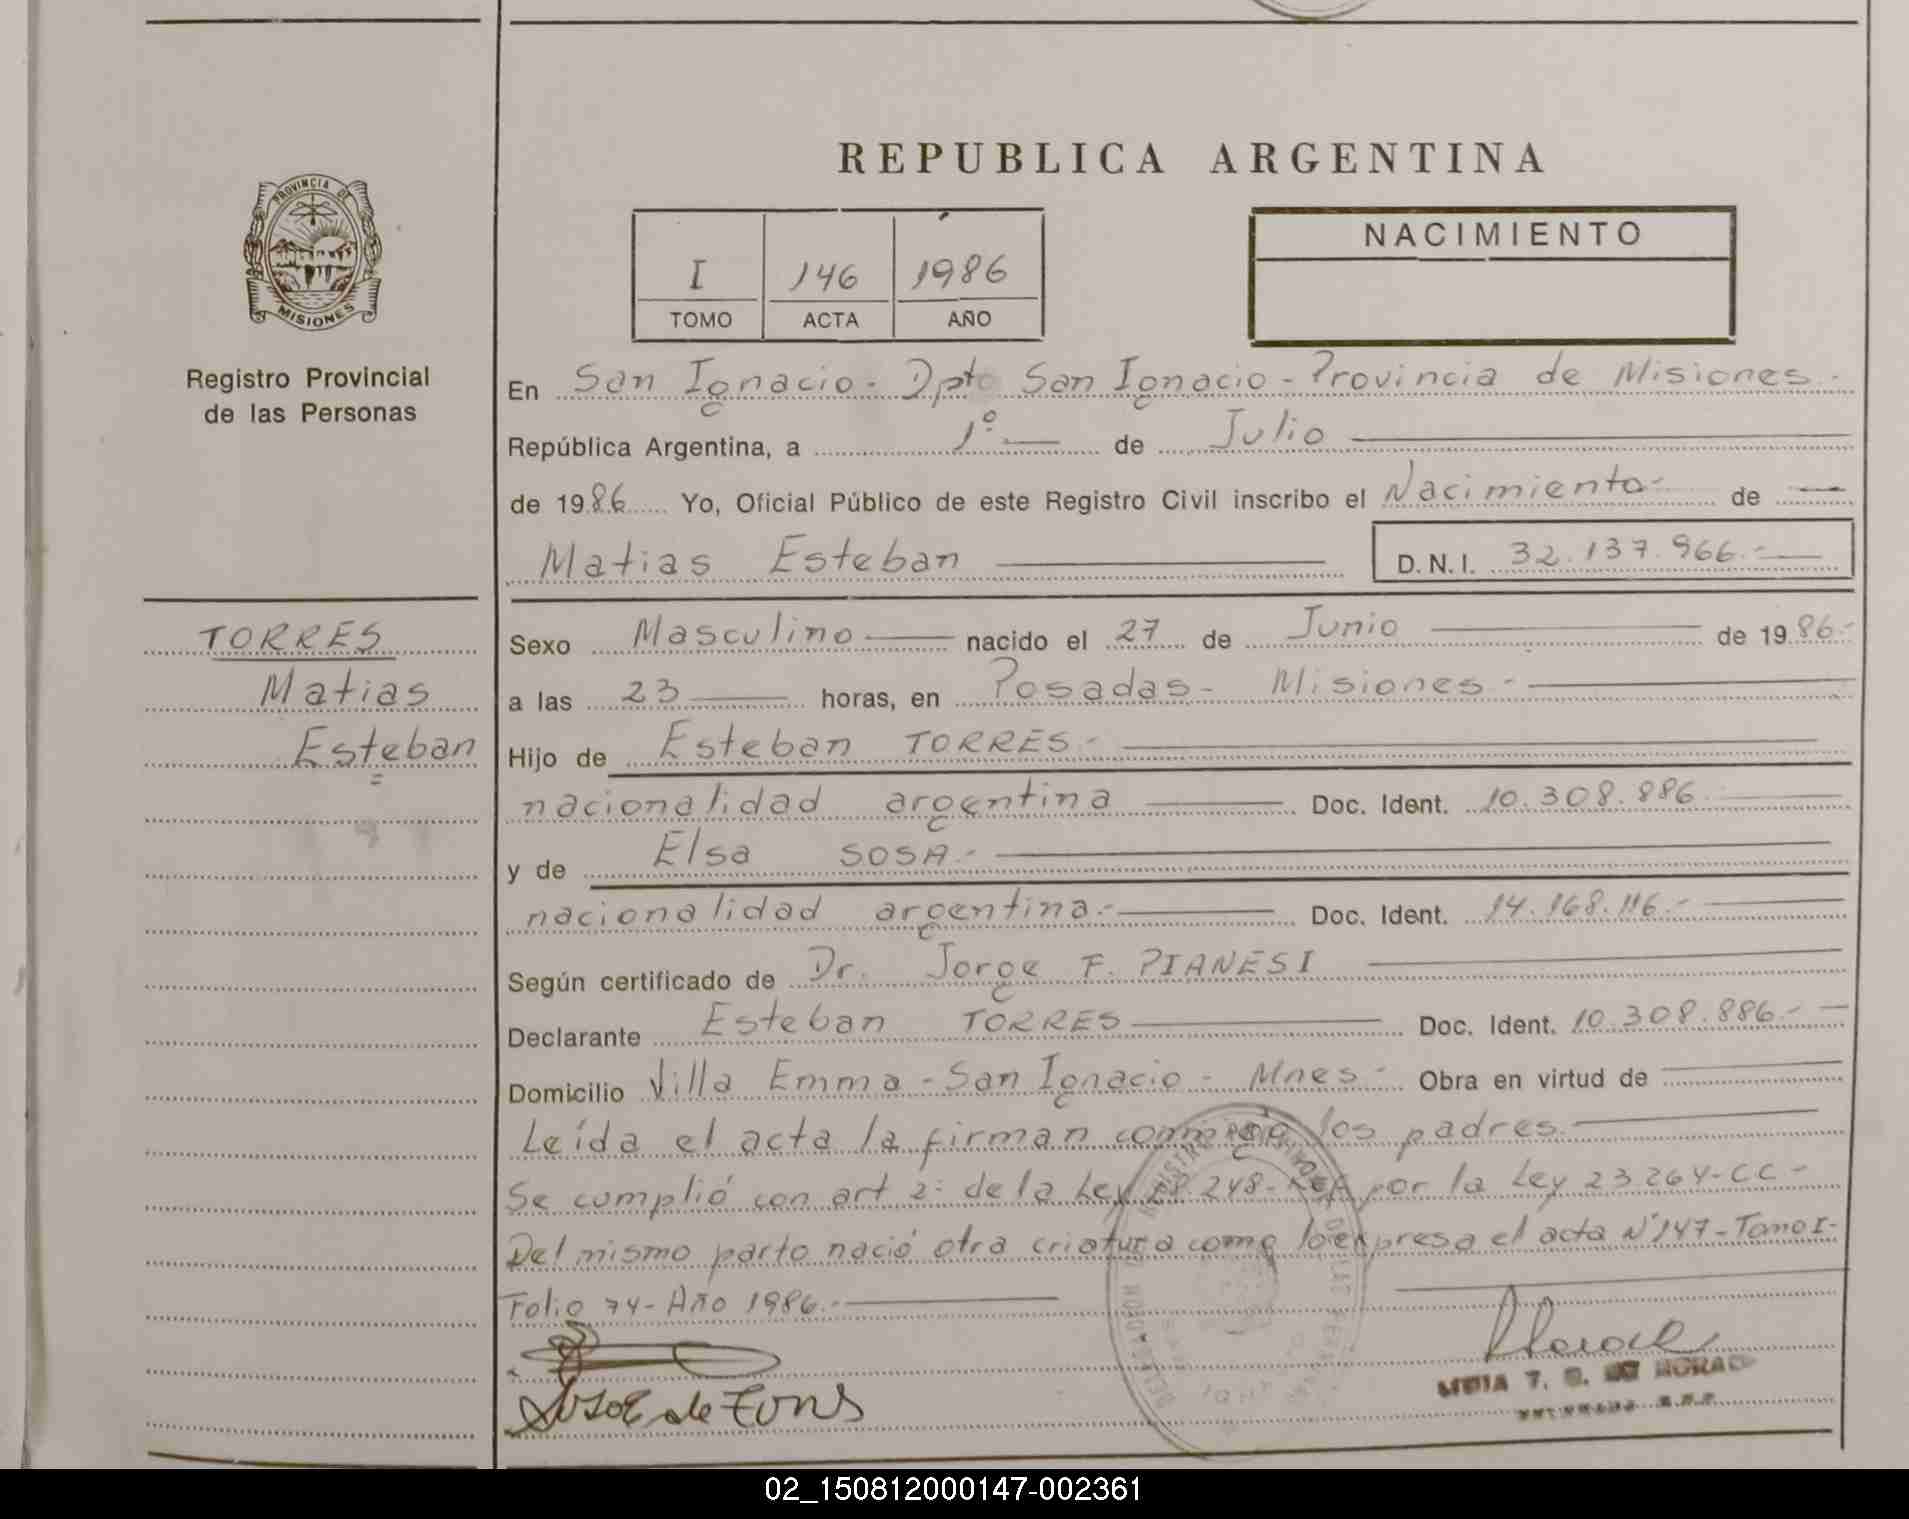 REPUBLICA ARGENTINA
PROVINCIA DE
MISIONES
Registro Provincial
de las Personas
I 146 1986
TOMO ACTA AÑO
NACIMIENTO
En San Ignacio - Dpto San Ignacio - Provincia de Misiones -
República Argentina, a 1º de Julio
de 1986 Yo, Oficial Público de este Registro Civil inscribo el Nacimiento - de
Matias Esteban D.N.I. 32.137.966.-
TORRES
Matias
Esteban
Sexo Masculino nacido el 27 de Junio de 1986.-
a las 23 horas, en Posadas - Misiones -
Hijo de Esteban TORRES -
nacionalidad argentina Doc. Ident. 10.308.886
y de Elsa SOSA.-
nacionalidad argentina.- Doc. Ident. 14.168.116.-
Según certificado de Dr. Jorge F. PIANESI
Declarante Esteban TORRES Doc. Ident. 10.308.886.-
Domicilio Villa Emma - San Ignacio - Mnes - Obra en virtud de
Leída el acta la firman conmigo los padres.
Se cumplió con art 2: de la Ley 18.248 - Ref por la Ley 23.264-CC-
Del mismo parto nació otra criatura como lo expresa el acta Nº 147 - Tomo I -
Folio 74 - Año 1986.-
02_150812000147-002361